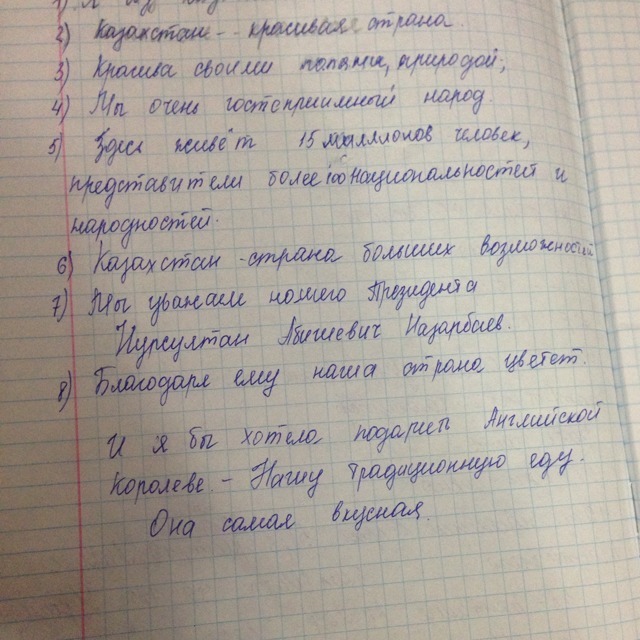 1) Я
2) Казахстан - красивая страна.
3) Красива своими природой,
4) Мы очень гостеприимный народ.
5) Здесь живёт 15 миллионов человек,
представители более 100 национальностей и
народностей.
6) Казахстан - страна больших возможностей
7) Мы уважаем нашего Президента
Нурсултан Абишевич Назарбаев.
8) Благодаря ему наша страна цветет.
И я бы хотела подарить Английской
Королеве. - Нашу традиционную еду.
Она самая вкусная.